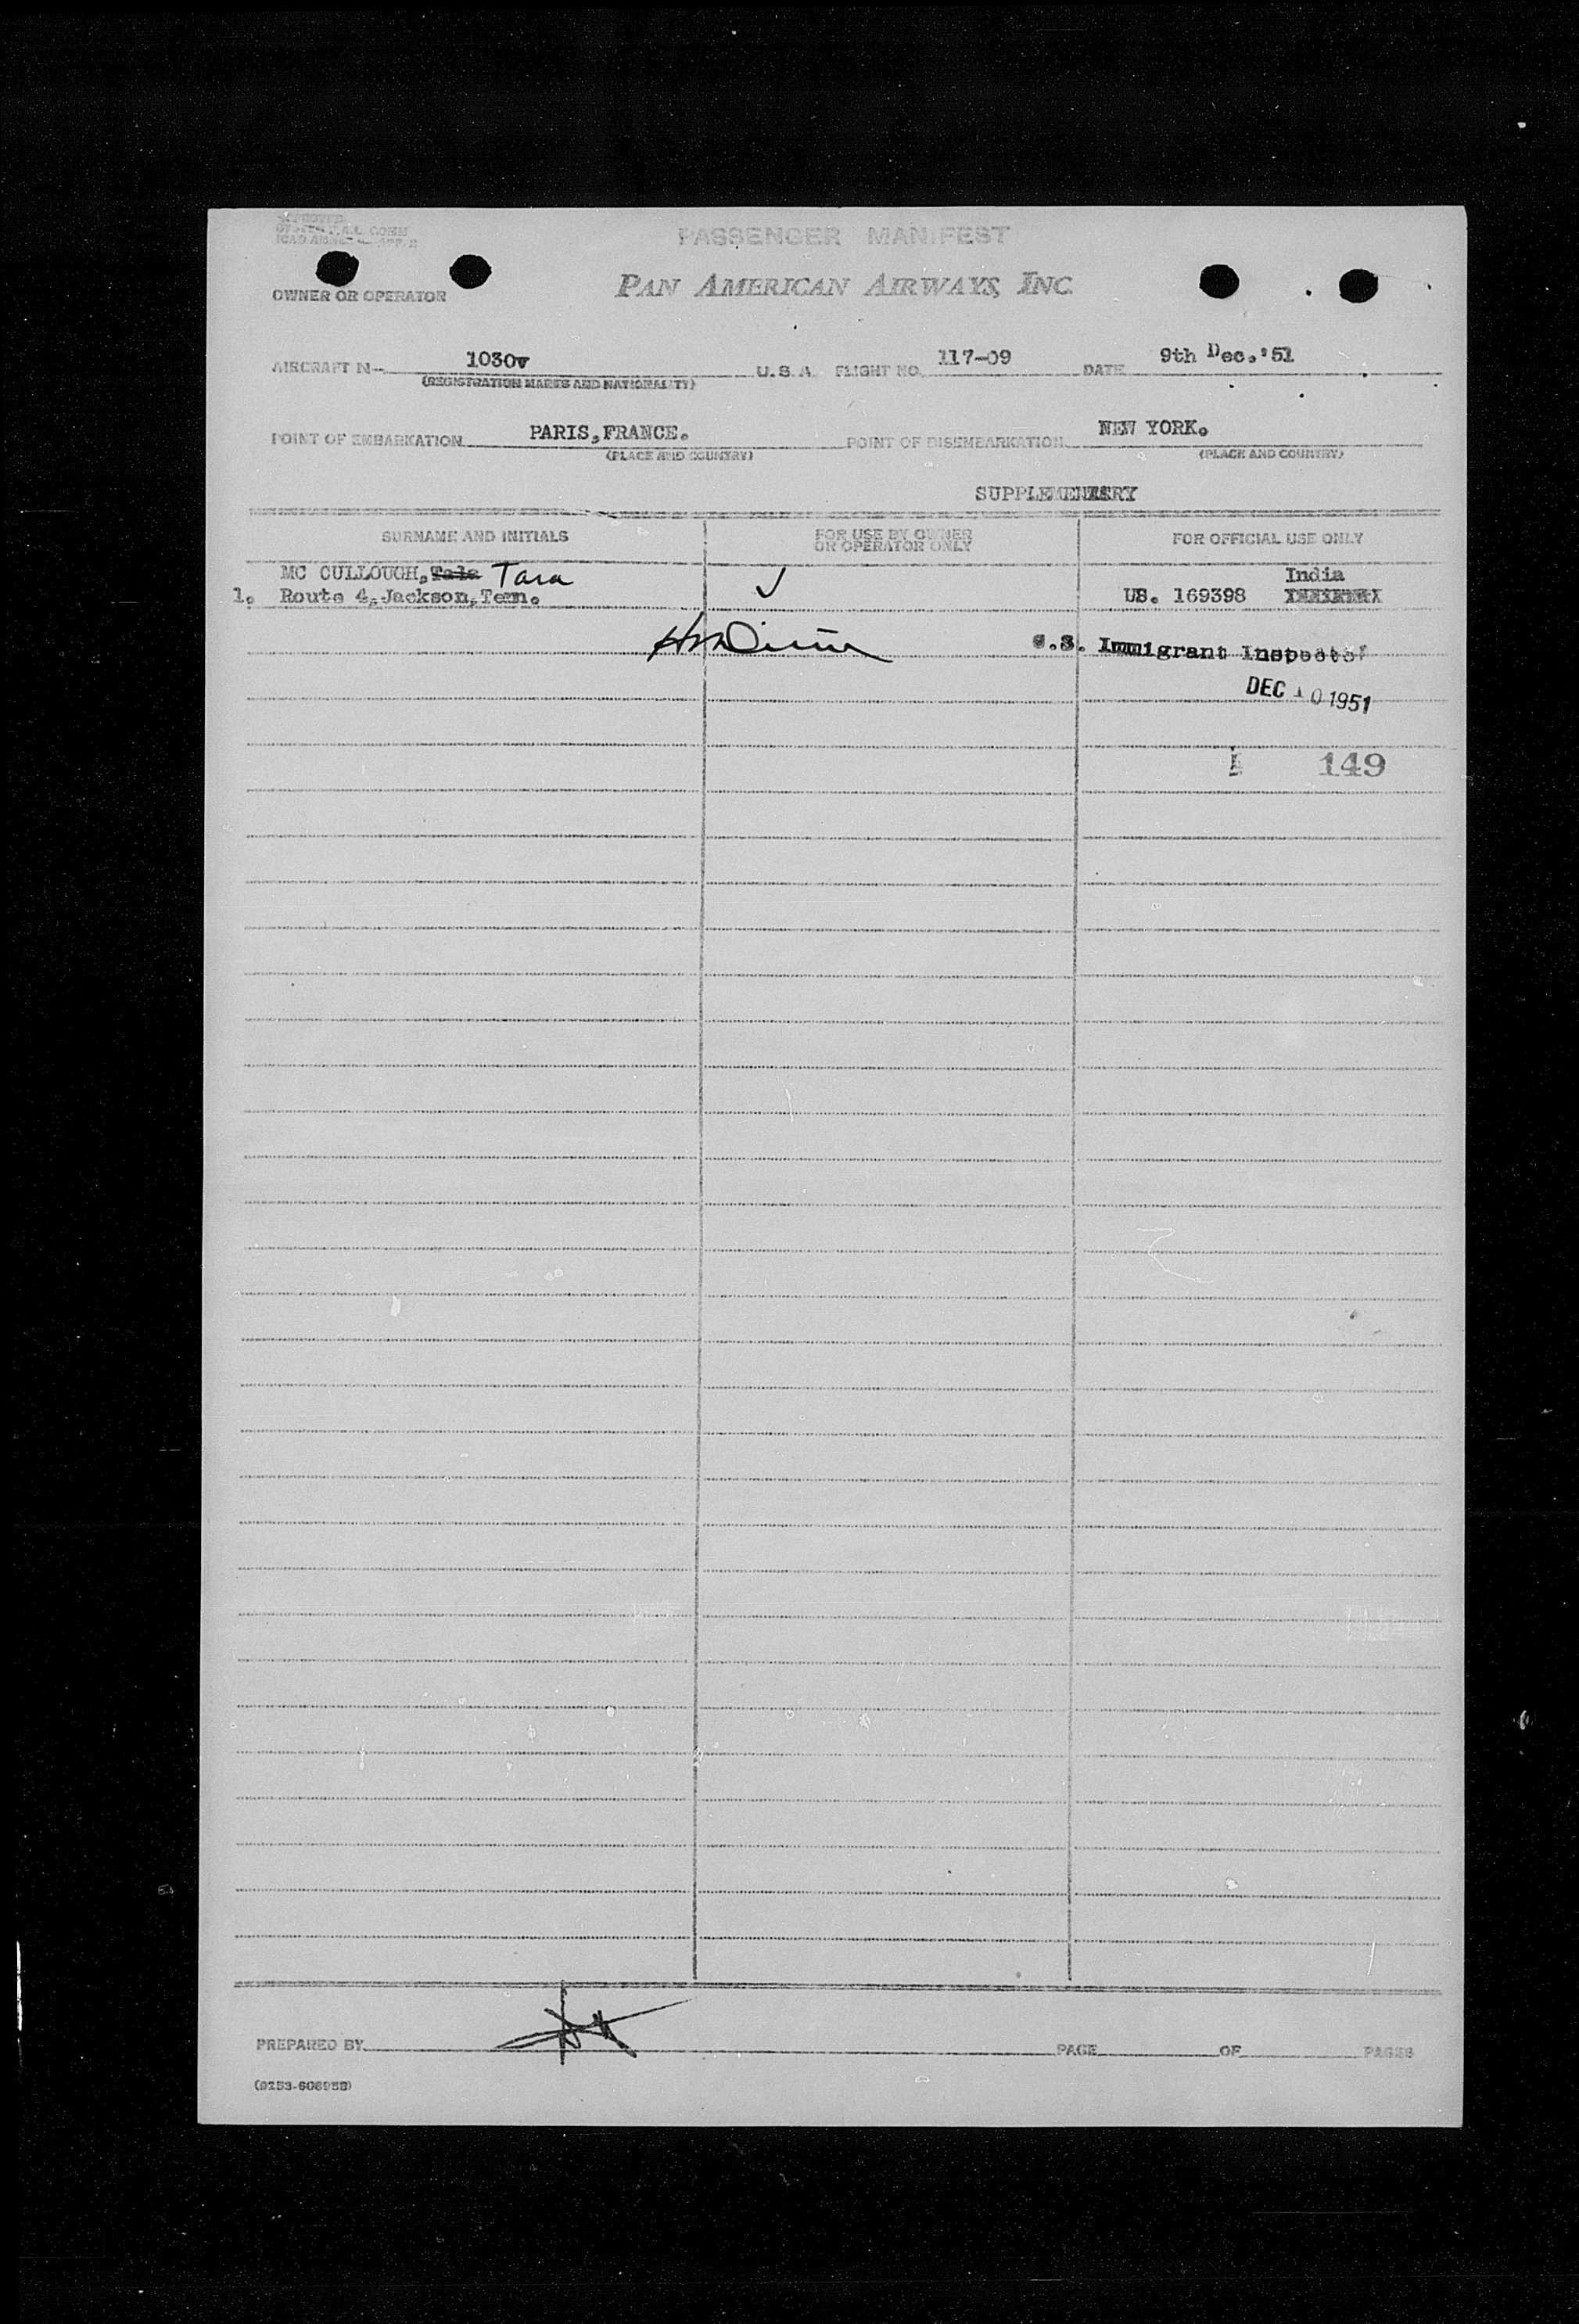 APPROVED
PASSENGER MANIFEST
OWNER OR OPERATOR PAN AMERICAN AIRWAYS, INC.
AIRCRAFT N- 1030v U.S.A. FLIGHT NO. 117-09 DATE 9th Dec.'51
(REGISTRATION MARKS AND NATIONALITY)
POINT OF EMBARKATION PARIS,FRANCE. POINT OF DISEMBARKATION NEW YORK.
(PLACE AND COUNTRY) (PLACE AND COUNTRY)
SUPPLEMENTARY
SURNAME AND INITIALS FOR USE BY OWNER OR OPERATOR ONLY FOR OFFICIAL USE ONLY
MC CULLOUGH, Tara India
1. Route 4,Jackson,Tenn. US. 169398
U.S. Immigrant Inspector
DEC 10 1951
149
PREPARED BY PAGE OF PAGES